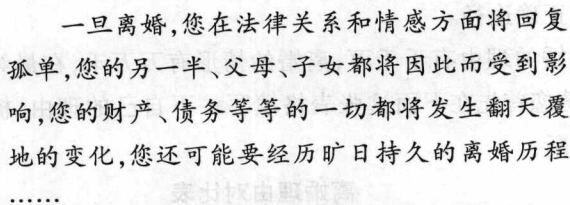 一旦离婚,您在法律关系和情感方面将回复
孤单,您的另一半、父母、子女都将因此而受到影
响,您的财产、债务等等的一切都将发生翻天覆
地的变化,您还可能要经历旷日持久的离婚历程
……